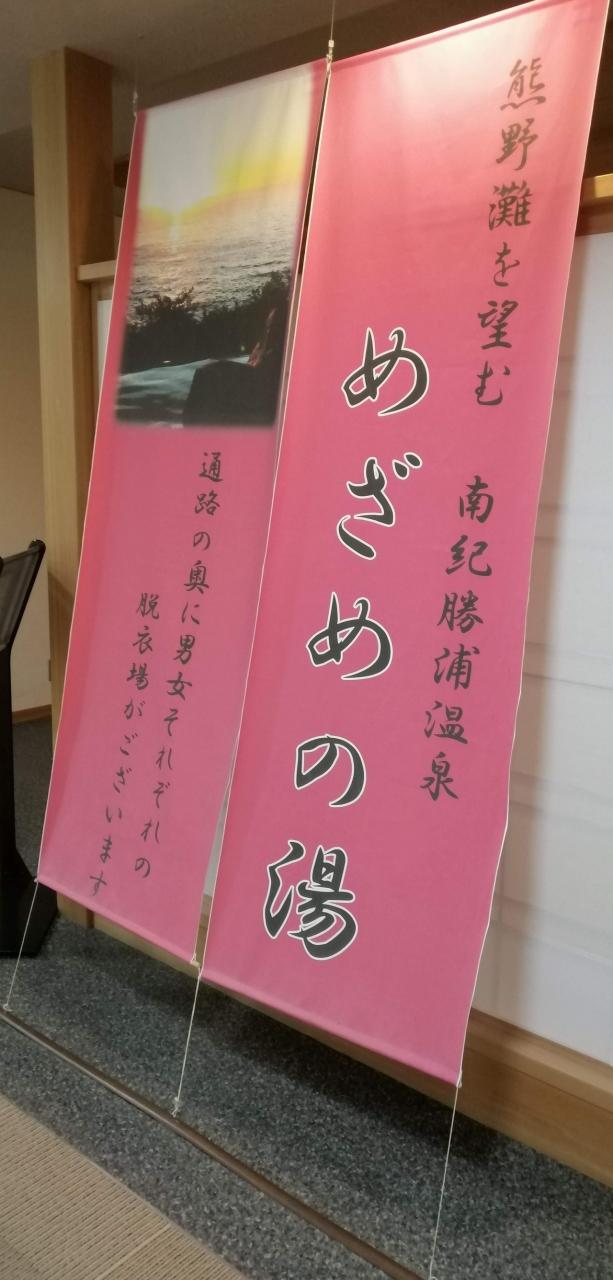 熊野灘を望む 南紀勝浦温泉
めざめの湯
通路の奥に男女それぞれの
脱衣場がございます